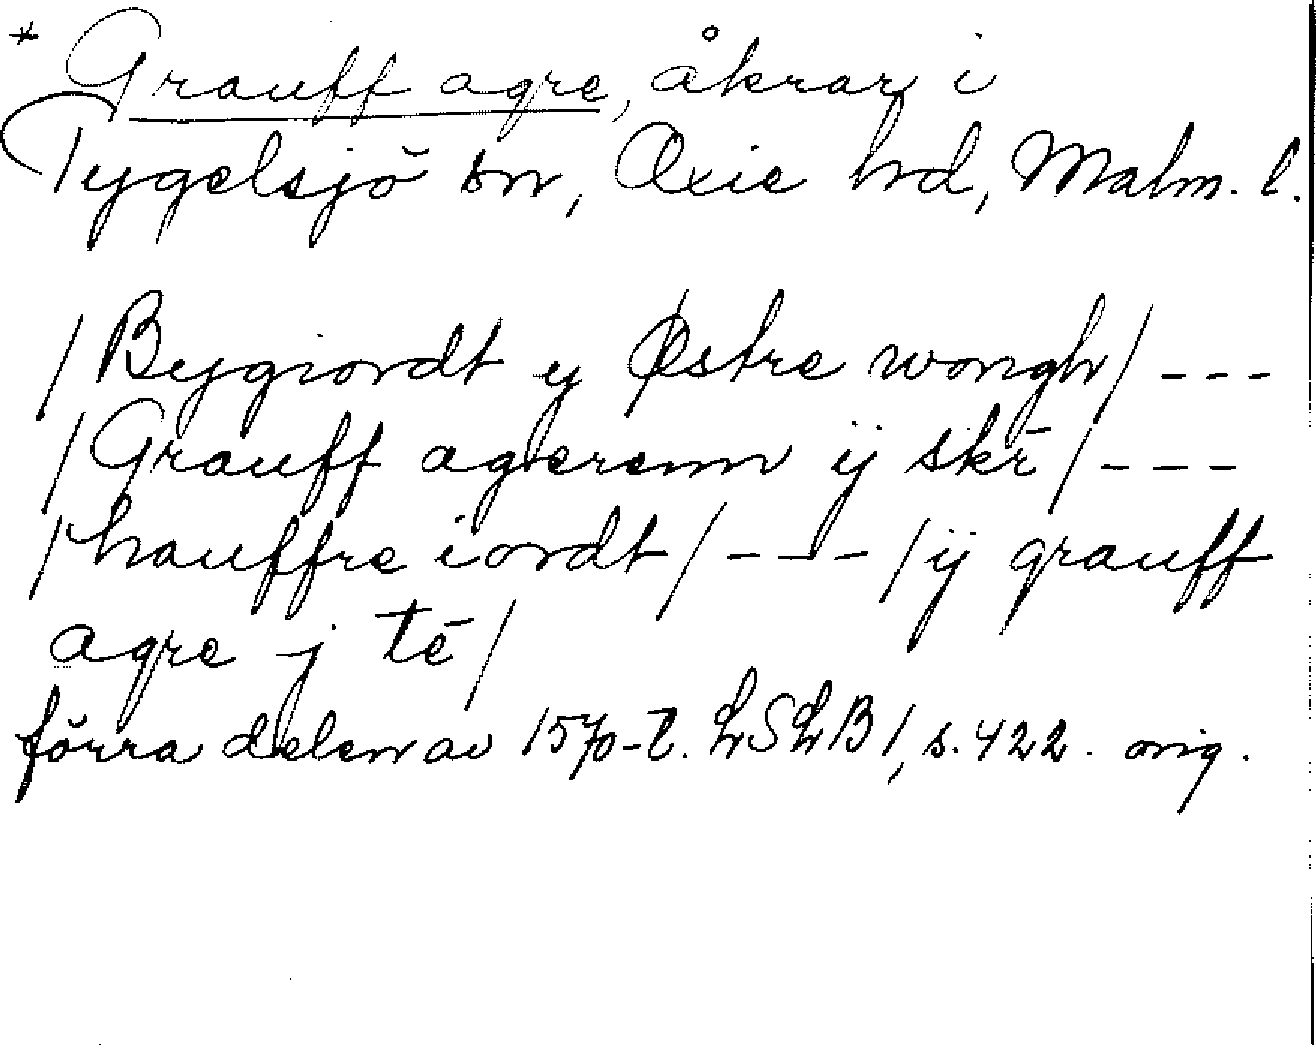 * Grauff agre, åkrar i
Tygelsjö sn, Oxie hd, Malm. l.
/ Bygiordt y Østre wongh / ---
/ Grauff agerenn ij skr̄ / ---
/ hauffre iordt / --- / ij grauff
agre j tē /
förra delen av 1570-t. LSLB 1, s. 422. orig.